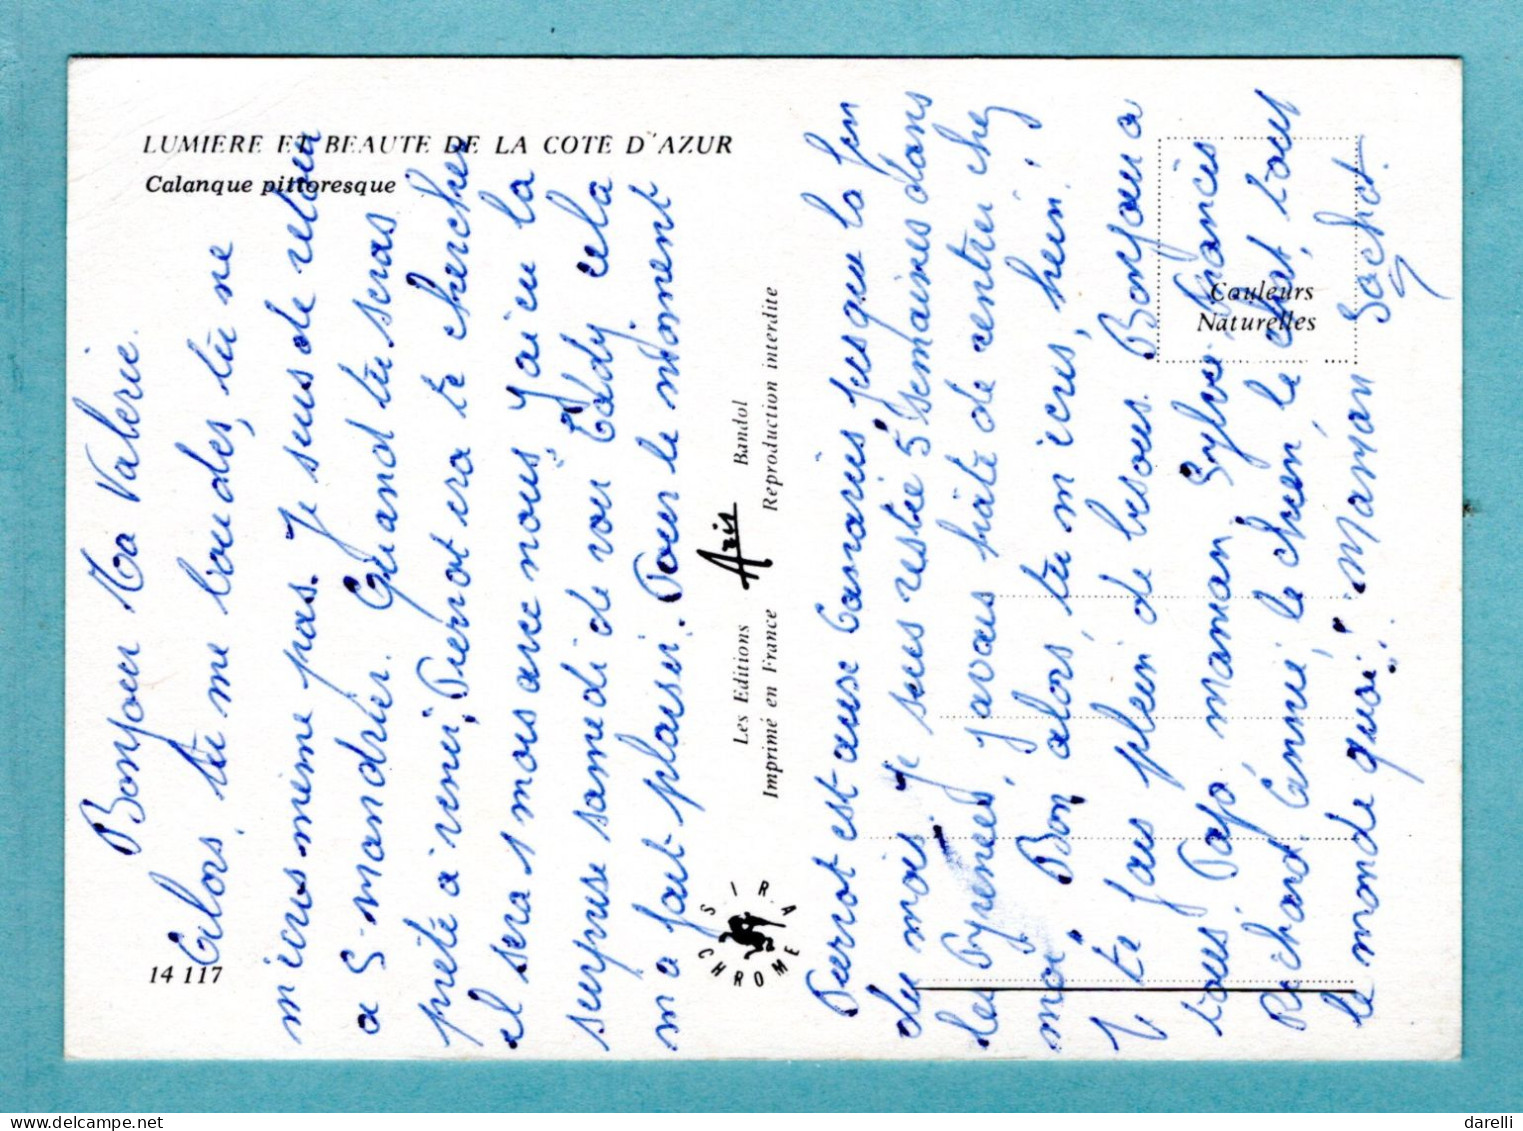 LUMIERE ET BEAUTE DE LA COTE D'AZUR
Calanque pittoresque
Bonjour Ma Valerie.
Alors, tu me boudes, tu ne
m'ecris meme pas. Je suis de retour
a S-mandrier. Quand tu seras
prête à venir, Pierrot ira te chercher
il sera 1 mois avec nous, J'ai eu la
surprise samedi de voir Eddy cela
m'a fait plaisir. Pour le moment
Pierrot est aux Canaries jusque la fin
du mois. Je suis restée 5 semaines dans
les Pyrenées, j'avais hâte de rentrer chez
moi. Bon alors, tu m'ecris, hein!
Je te fais plein de bisous. Bonjour a
tous Papa maman Sylvie, Francis
Richard. Annie, le chien, le chat, tout
le monde quoi! Maman Sachot.
Les Editions Aris Bandol
Imprimé en France Reproduction interdite
SIRA
CHROME
Couleurs
Naturelles
14 117
delcampe.net
darelli